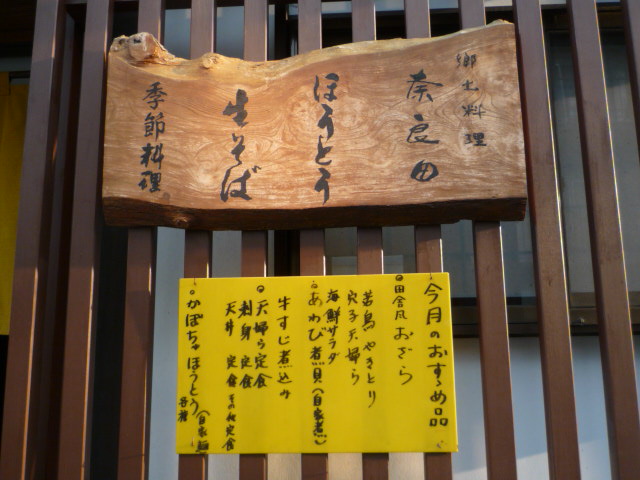 郷土料理
奈良田
ほうとう
生そば
季節料理
今月のおすゝめ品
田舎風おざら
若鳥やきとり
穴子天婦ら
海鮮サラダ
あわび煮貝(自家煮)
牛すじ煮込み
天婦ら定食
刺身定食
天丼 定食 その他定食
かぼちゃほうとう(自家麺